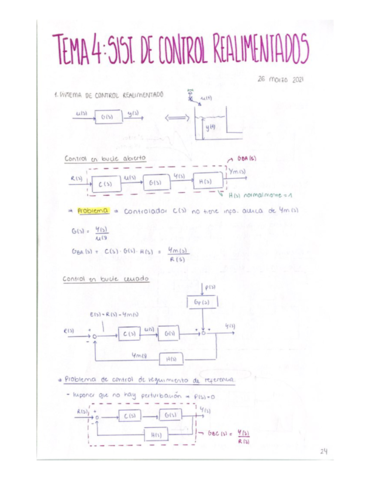 TEMA 4: SIST. DE CONTROL REALIMENTADOS
26 marzo 2021
1. SISTEMA DE CONTROL REALIMENTADO
u(t) G(s) y(t)
Control en bucle abierto
GBA(s)
R(s) C(s) U(s) G(s) Y(s) H(s) Ym(s)
H(s) normalmente = 1
→ Problema → Controlador C(s) no tiene info. acerca de Ym(s)
G(s) = Y(s)/U(s)
GBA(s) = C(s) · G(s) · H(s) = Ym(s)/R(s)
Control en bucle cerrado
P(s)
E(s) = R(s) - Ym(s)
R(s) + - C(s) U(s) G(s) + + Y(s)
Ym(s) H(s)
Problema de control de seguimiento de referencia
- Suponer que no hay perturbación → P(s) = 0
R(s) + - C(s) G(s) Y(s)
H(s)
GBC(s) = Y(s)/R(s)